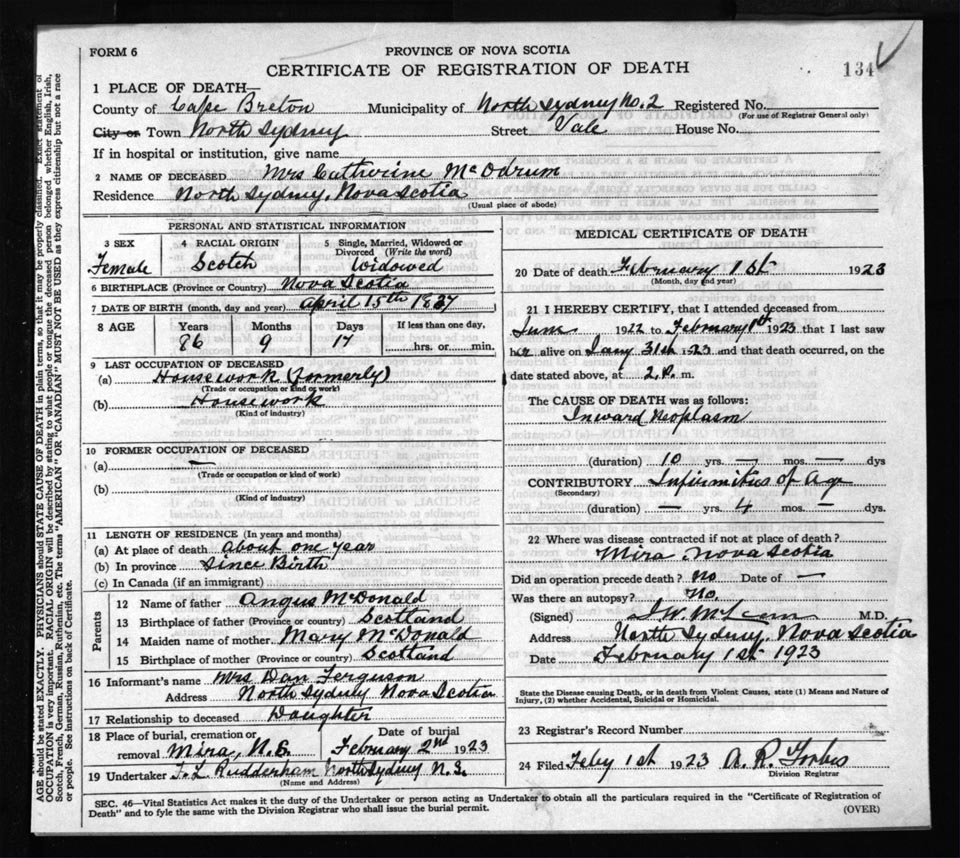 FORM 6
PROVINCE OF NOVA SCOTIA
CERTIFICATE OF REGISTRATION OF DEATH
134
1 PLACE OF DEATH—
County of Cape Breton Municipality of North Sydney No. 2 Registered No.
(For use of Registrar General only)
City or Town North Sydney Street Vale House No.
If in hospital or institution, give name
2 NAME OF DECEASED Mrs Catherine McOdrum
Residence North Sydney, Nova Scotia
(Usual place of abode)
PERSONAL AND STATISTICAL INFORMATION
3 SEX 4 RACIAL ORIGIN 5 Single, Married, Widowed or Divorced (Write the word)
Female Scotch Widowed
6 BIRTHPLACE (Province or Country) Nova Scotia
7 DATE OF BIRTH (month, day and year) April 15th 1837
8 AGE Years Months Days If less than one day,
86 9 17 hrs. or min.
9 LAST OCCUPATION OF DECEASED
(a) Housework (formerly)
(Trade or occupation or kind of work)
(b) Housework
(Kind of industry)
10 FORMER OCCUPATION OF DECEASED
(a) —
(Trade or occupation or kind of work)
(b)
(Kind of industry)
11 LENGTH OF RESIDENCE (In years and months)
(a) At place of death about one year
(b) In province Since Birth
(c) In Canada (if an immigrant)
Parents
12 Name of father Angus McDonald
13 Birthplace of father (Province or country) Scotland
14 Maiden name of mother Mary McDonald
15 Birthplace of mother (Province or country) Scotland
16 Informant's name Mrs Dan Ferguson
Address North Sydney Nova Scotia
17 Relationship to deceased Daughter
18 Place of burial, cremation or Date of burial
removal Mira, N.S. February 2nd 1923
19 Undertaker F. L. Rudderham North Sydney N.S.
(Name and Address)
MEDICAL CERTIFICATE OF DEATH
20 Date of death February 1st 1923
(Month, day and year)
21 I HEREBY CERTIFY, that I attended deceased from
June 1922 to February 1st 1923 that I last saw
her alive on Jany 31st 1923 and that death occurred, on the
date stated above, at 2. P. m.
The CAUSE OF DEATH was as follows:
Inward Neoplasm
(duration) 10 yrs. — mos. — dys
CONTRIBUTORY Infirmities of Age
(Secondary)
(duration) — yrs. 4 mos. — dys.
22 Where was disease contracted if not at place of death?
Mira, Nova Scotia
Did an operation precede death? No Date of —
Was there an autopsy? No.
(Signed) M.D.
Address North Sydney, Nova Scotia
Date February 1st 1923
State the Disease causing Death, or in death from Violent Causes, state (1) Means and Nature of
Injury, (2) whether Accidental, Suicidal or Homicidal.
23 Registrar's Record Number
24 Filed Feby 1st 1923 A. R. Forbes
Division Registrar
SEC. 46—Vital Statistics Act makes it the duty of the Undertaker or person acting as Undertaker to obtain all the particulars required in the "Certificate of Registration of
Death" and to fyle the same with the Division Registrar who shall issue the burial permit.
(OVER)
AGE should be stated EXACTLY. PHYSICIANS should STATE CAUSE OF DEATH in plain terms, so that it may be properly classified. Exact statement of
OCCUPATION is very important. RACIAL ORIGIN will be described by stating to what people or tongue the deceased person belonged whether English, Irish,
Scotch, French, German, Russian, Ruthenian, etc. The terms "AMERICAN" OR "CANADIAN" MUST NOT BE USED as they express citizenship but not a race
or people. See instructions on back of Certificate.